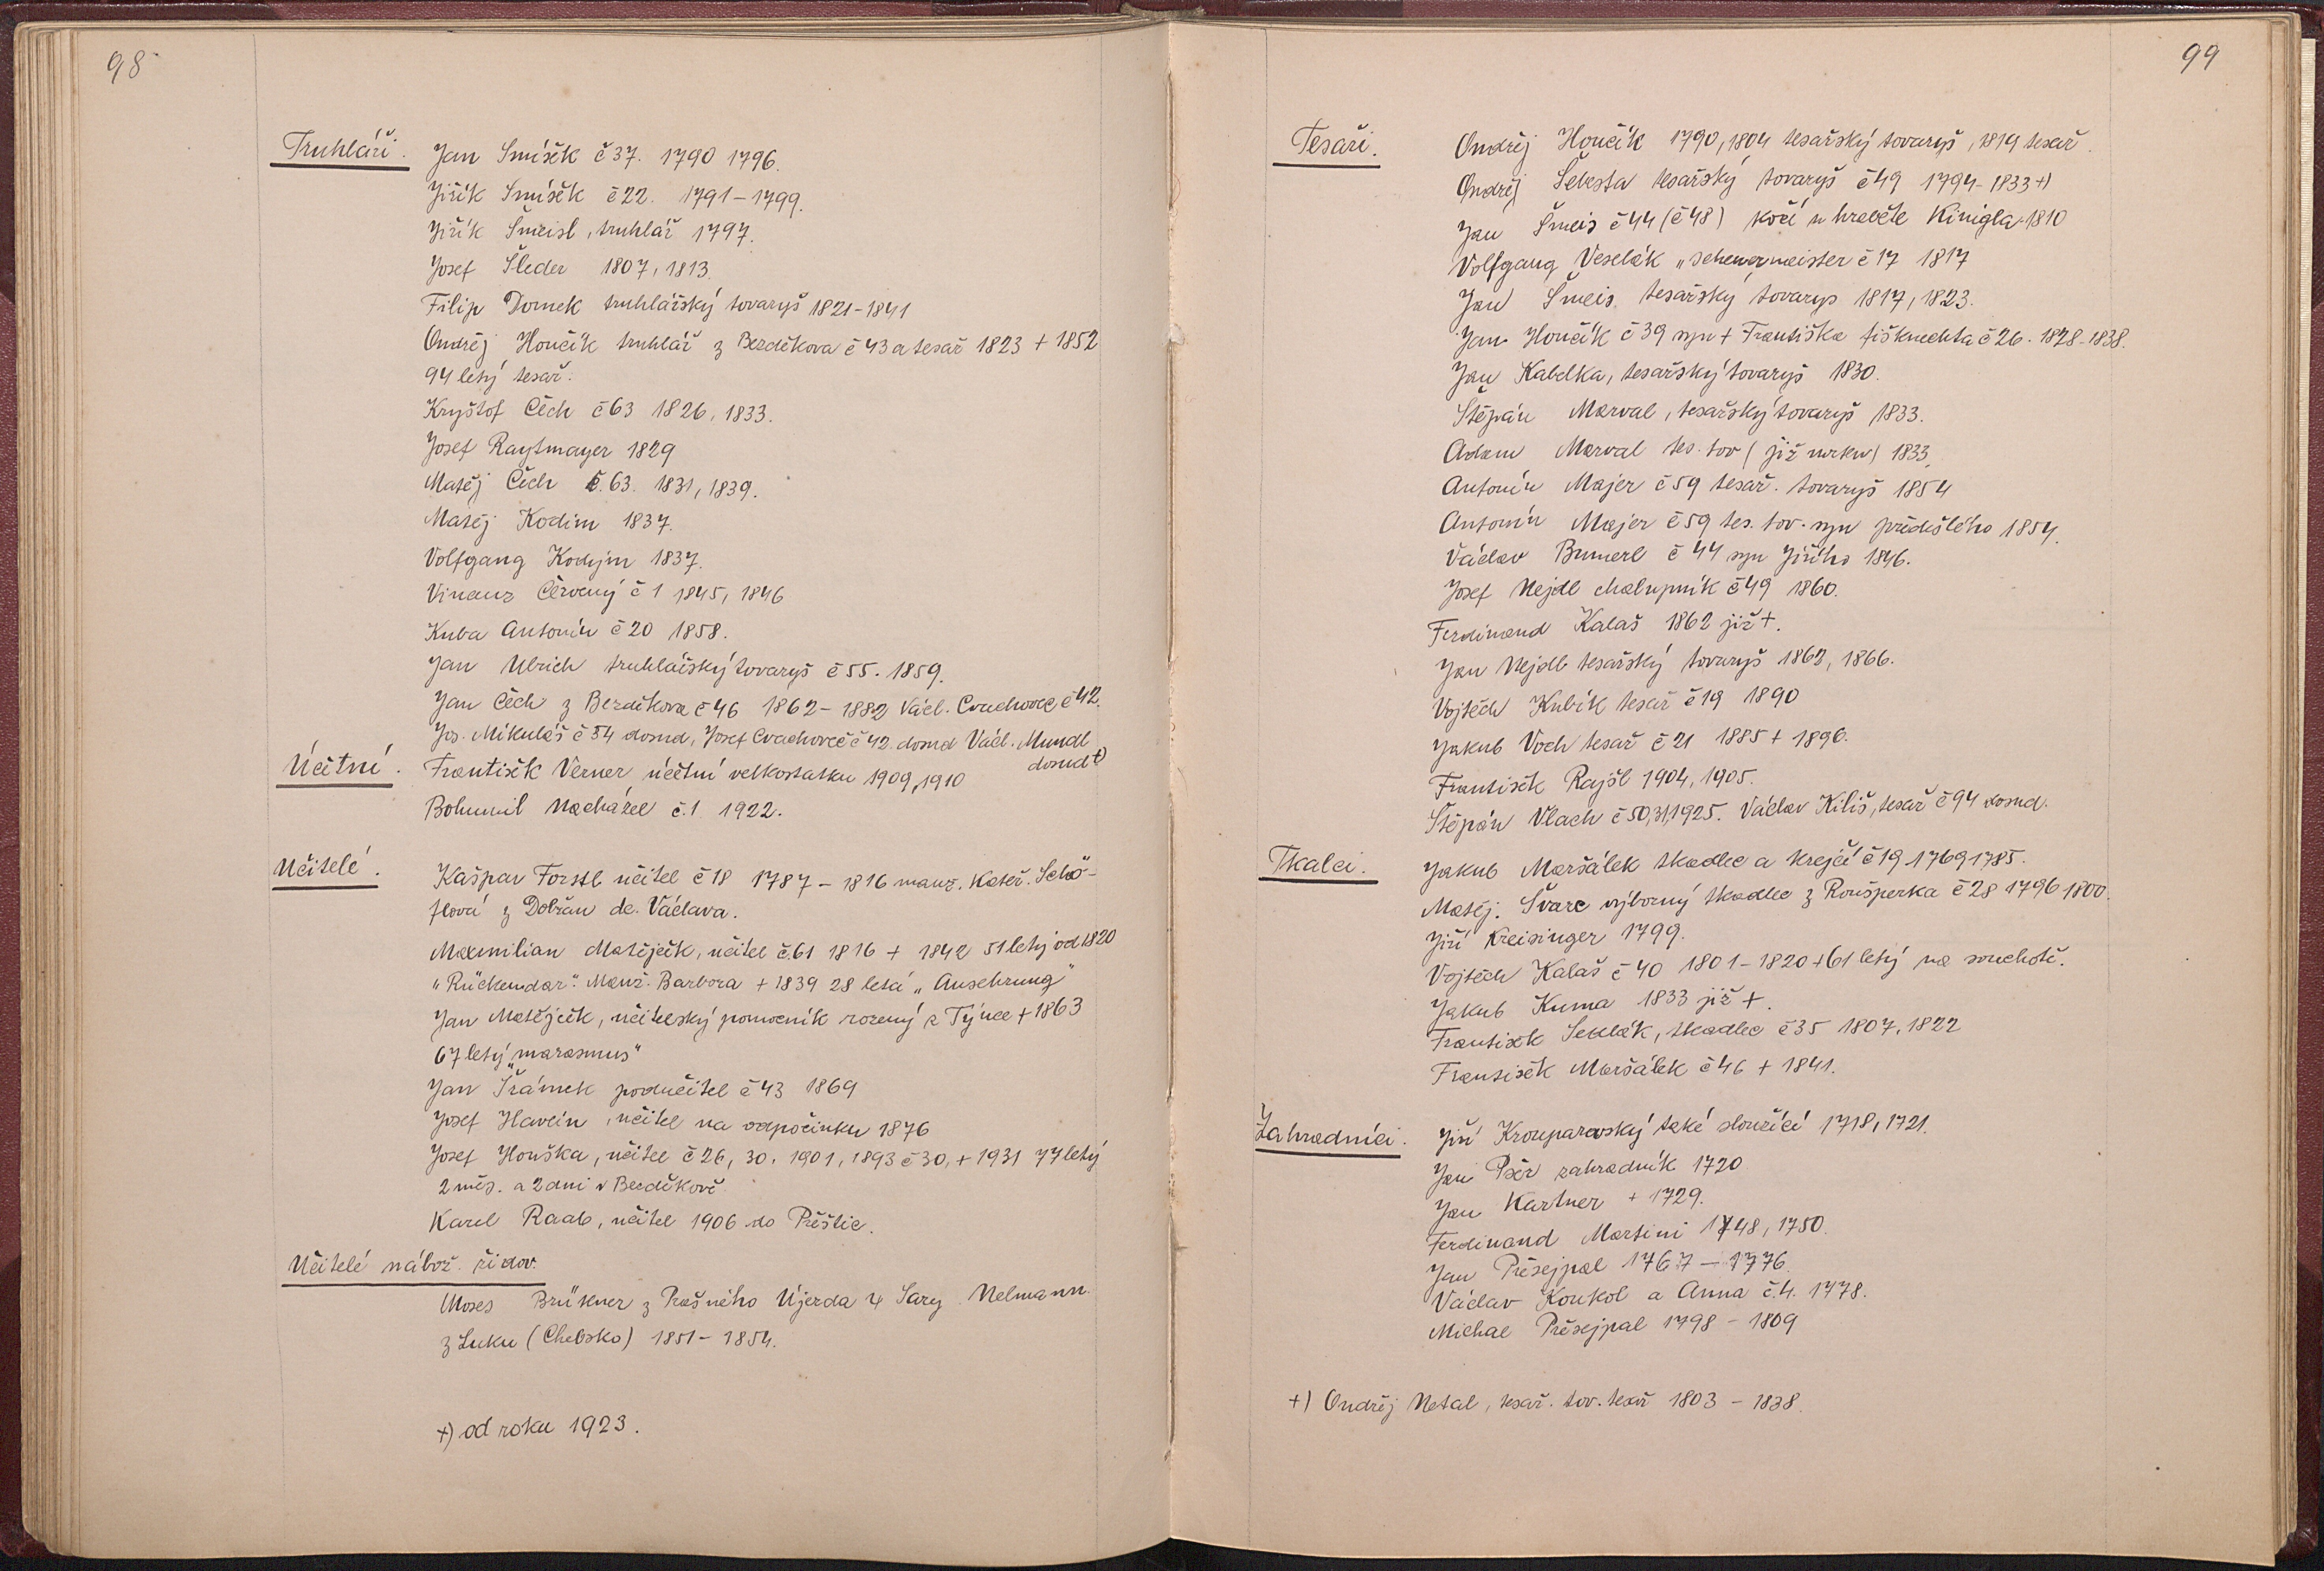 98
Truhláři. Jan Smíšek č 37. 1790 1796.
Jiřík Smíšek č 22. 1791-1799.
Jiřík Šmeisl, truhlář 1797.
Josef Šleder 1807, 1813.
Filip Domek truhlářský tovaryš 1821-1841
Ondřej Houčík truhlář z Bezděkova č 43 a tesař 1823 + 1852
94 letý tesař.
Kryštof Čech č 63 1826, 1833.
Josef Raytmayer 1829
Matěj Čech č. 63. 1831, 1839.
Matěj Kodim 1837.
Volfgang Kodym 1837.
Vinanz Červený č 1 1845, 1846
Kuba Antonín č 20 1858.
Jan Ulrich truhlářský tovaryš č 55. 1859.
Jan Čech z Bezděkova č 46 1862-1882 Václ. Cvachovec č 42.
Jos. Mikuláš č 54 dosud, Josef Cvachovec č 42. dosud Václ. Mundl
dosud +)
Účetní. František Verner účetní velkostatku 1909, 1910
Bohumil Macházel č. 1 1922.
Učitelé. Kašpar Forstl učitel č 18 1787 - 1816 manž. Kateř. Schö-
flová z Dobřan dc. Václava.
Maxmilian Matějček, učitel č. 61 1816 + 1842 51 letý od 1820
"Rückendar". Manž. Barbora + 1839 28 letá "Ausehrung"
Jan Matějček, učitelský pomocník rozený z Týnce + 1863
67 letý "marasmus"
Jan Šrámek podučitel č 43 1869
Josef Havlín, učitel na odpočinku 1876
Josef Houška, učitel č 26, 30. 1901, 1893 č 30, + 1931 77 letý
2 měs. a 2 dni v Bezděkově
Karel Raab, učitel 1906 do Přeštic.
Učitelé nábož. židov.
Moses Brükner z Prašného Újezda & Sary Nelmann
z Luku (Chebsko) 1851-1854.
+) od roku 1923.
99
Tesaři. Ondřej Houčík 1790, 1804 tesařský tovaryš, 1819 tesař.
Ondřej Šebesta tesařský tovaryš č 49 1794-1833 +)
Jan Šmeis č 44 (č 48) kočí u hraběte Kinigla 1810
Volfgang Veselák č 17 1817
Jan Šmeis tesařský tovaryš 1817, 1823.
Jan Houčík č 39 syn + Františka fišknechta č 26. 1828-1838.
Jan Kabelka, tesařský tovaryš 1830.
Štěpán Marval, tesařský tovaryš 1833.
Adam Marval tes. tov (již mrtev) 1833.
Antonín Majer č 59 tesař. tovaryš 1854
Antonín Majer č 59 tes. tov. syn předešlého 1854.
Václav Brumerl č 44 syn Jiřího 1846.
Josef Nejdl chalupník č 49 1860.
Ferdinand Kalaš 1862 již +.
Jan Nejdl tesařský tovaryš 1862, 1866.
Vojtěch Kubík tesař č 19 1890
Jakub Voch tesař č 21 1885 + 1896.
František Rajšl 1904, 1905.
Štěpán Vlach č 50, 31, 1925. Václav Kiliš, tesař č 94 dosud.
Tkalci. Jakub Maršálek tkadlec a krejčí č 19 1769 1785.
Matěj. Švarc výborný tkadlec z Roušperka č 28 1796 1800.
Jiří Kreisinger 1799.
Vojtěch Kalaš č 40 1801-1820 + 61 letý na souchotě.
Jakub Kuma 1833 již +.
František Sedlák, tkadlec č 35 1807, 1822
František Maršálek č 46 + 1841.
Zahradníci. Jiří Krouparovský také sloužící 1718, 1721.
Jan Psér zahradník 1720
Jan Kartner + 1729.
Ferdinand Martini 1748, 1750.
Jan Přesejpal 1767 - 1776.
Václav Koukol a Anna č. 4. 1778.
Michal Přesejpal 1798 - 1809
+) Ondřej Netal, tesař. tov. tesař 1803 - 1838.